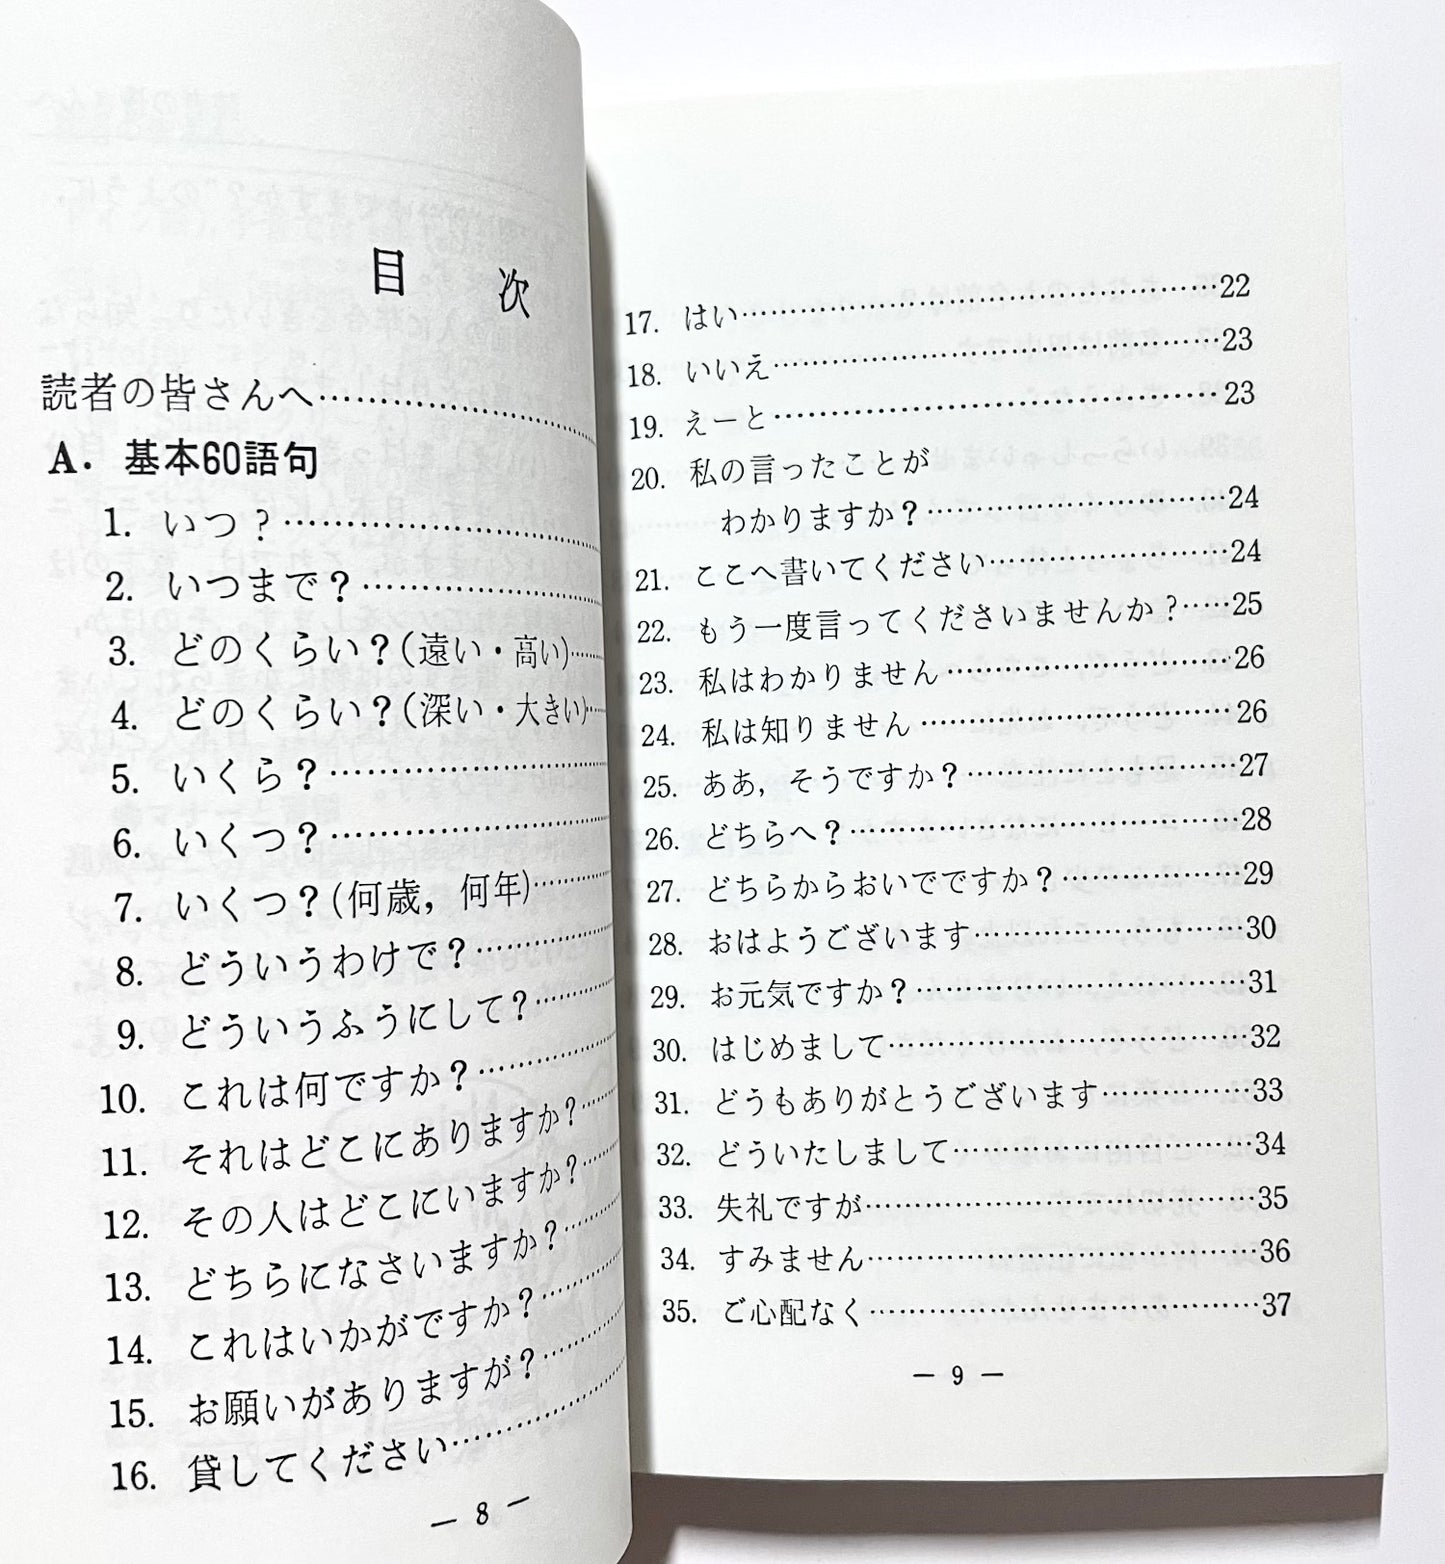 目次
読者の皆さんへ……………………
A. 基本60語句
1. いつ？……………………
2. いつまで？……………………
3. どのくらい？(遠い・高い)………
4. どのくらい？(深い・大きい)……
5. いくら？……………………
6. いくつ？……………………
7. いくつ？(何歳，何年)…………
8. どういうわけで？……………
9. どういうふうにして？…………
10. これは何ですか？……………
11. それはどこにありますか？……
12. その人はどこにいますか？……
13. どちらになさいますか？………
14. これはいかがですか？…………
15. お願いがありますが？…………
16. 貸してください………………
— 8 —
17. はい……………………………………22
18. いいえ…………………………………23
19. えーと…………………………………23
20. 私の言ったことが
わかりますか？………………………24
21. ここへ書いてください………………24
22. もう一度言ってくださいませんか？……25
23. 私はわかりません……………………26
24. 私は知りません………………………26
25. ああ，そうですか？…………………27
26. どちらへ？……………………………28
27. どちらからおいでですか？…………29
28. おはようございます…………………30
29. お元気ですか？………………………31
30. はじめまして…………………………32
31. どうもありがとうございます………33
32. どういたしまして……………………34
33. 失礼ですが……………………………35
34. すみません……………………………36
35. ご心配なく……………………………37
— 9 —